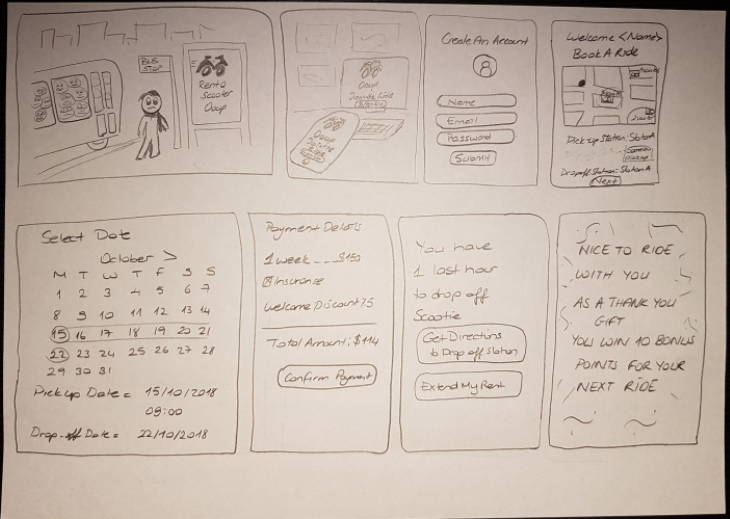 BUS
STOP
Rent a
Scooter
Create An Account
Name
Email
Password
Submit
Welcome <Name>
Book A Ride
Pick up Station: Station A
Drop off Station: Station A
Next
Select Date
October >
M T W T F S S
1 2 3 4 5 6 7
8 9 10 11 12 13 14
15 16 17 18 19 20 21
22 23 24 25 26 27 28
29 30 31
Pick up Date = 15/10/2018
09:00
Drop-off Date = 22/10/2018
Payment Details
1 week ... $150
Insuranse
Welcome Discount 25
Total Amount: $114
Confirm Payment
You have
1 last hour
to drop off
Scootie
Get Directions
to Drop off Station
Extend My Rent
NICE TO RIDE
WITH YOU
AS A THANK YOU
GIFT
YOU WIN 10 BONUS
POINTS FOR YOUR
NEXT RIDE